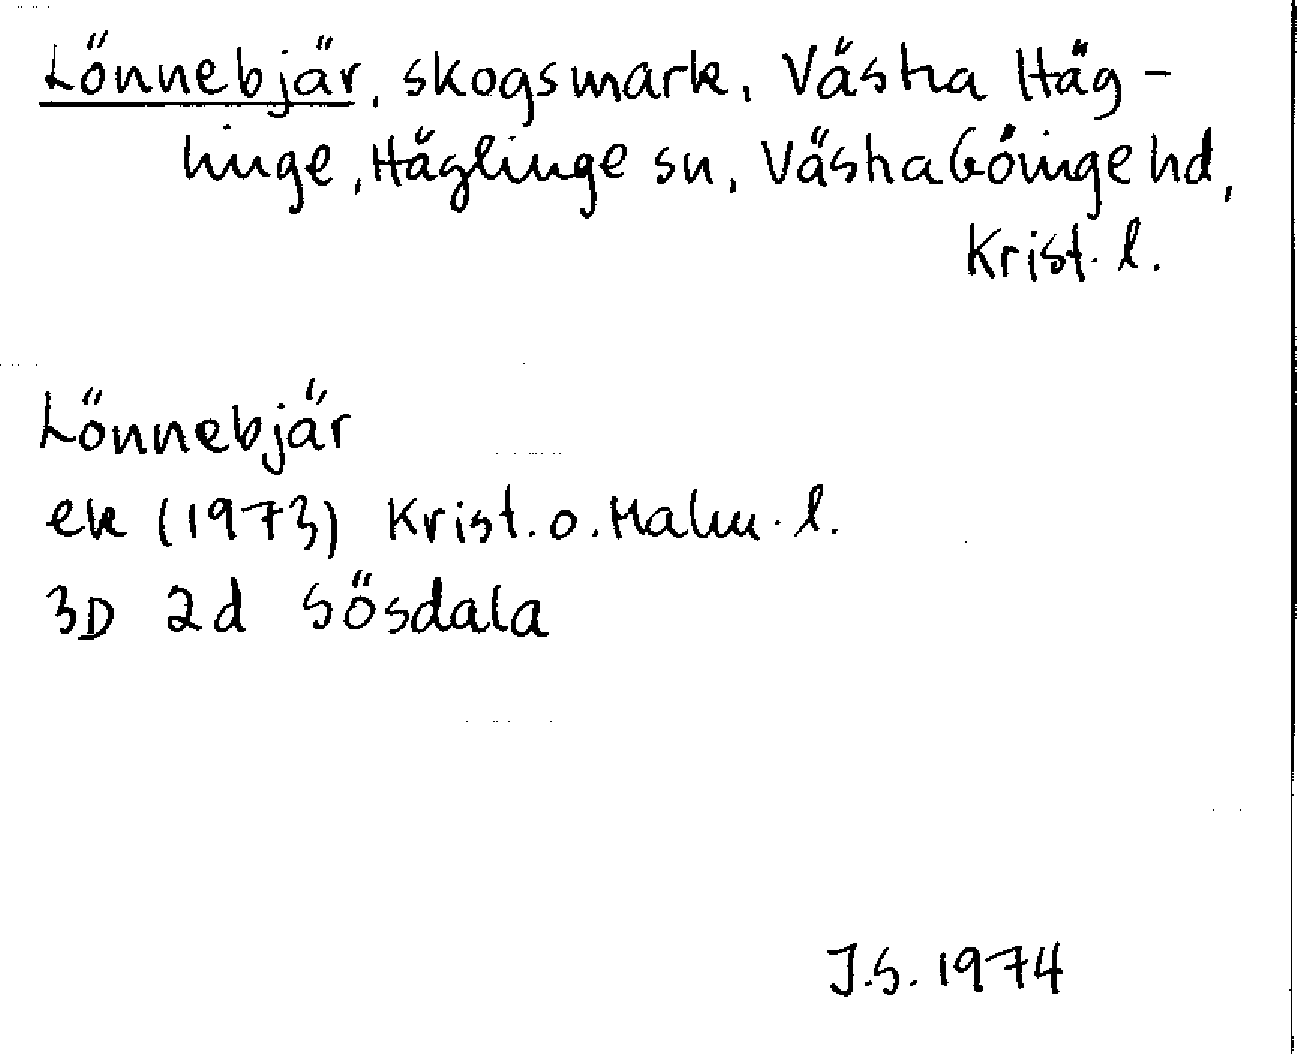 Lönnebjär, skogsmark, Västra Häg-
linge, Häglinge sn, Västra Göinge hd,
Krist. l.
Lönnebjär
ek (1973) Krist. o. Malm. l.
3D 2d Sösdala
J.S. 1974